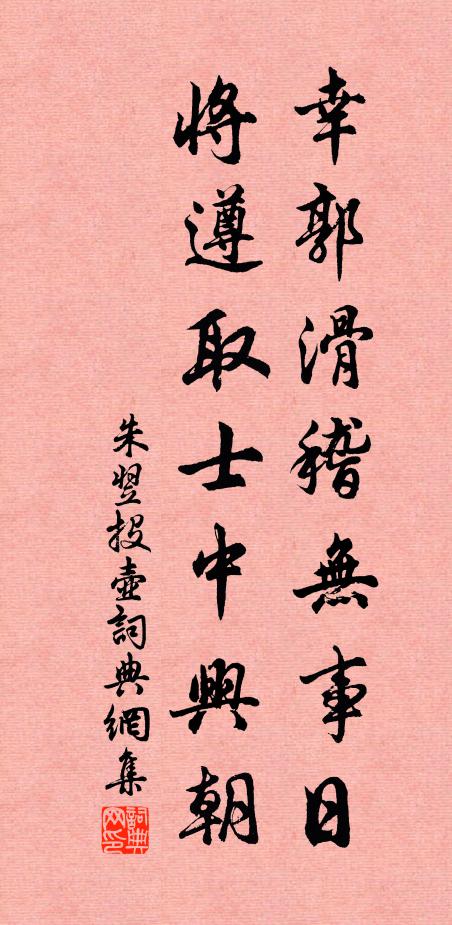 幸郭滑稽無事日
將遵取士中興朝
朱翌投壺詞典網集
詞典网印